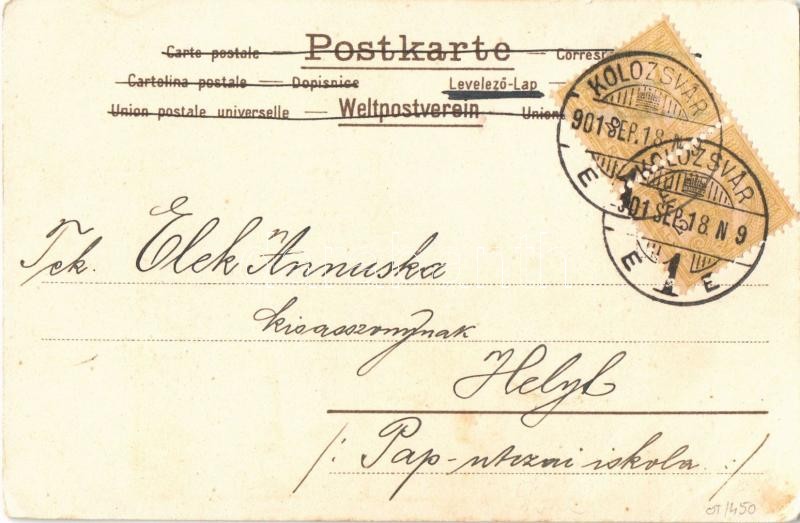 Carte postale — Postkarte — Corres
Cartolina postale — Dopisnice Levelező-Lap —
Union postale universelle — Weltpostverein — Union
KOLOZSVÁR
901 SEP. 18. N
E
KOLOZSVÁR
901 SEP. 18 N 9
E 1 E
Tek. Elek Annuska
kisasszonynak
Helyb
/: Pap-utczai iskola :/
1450